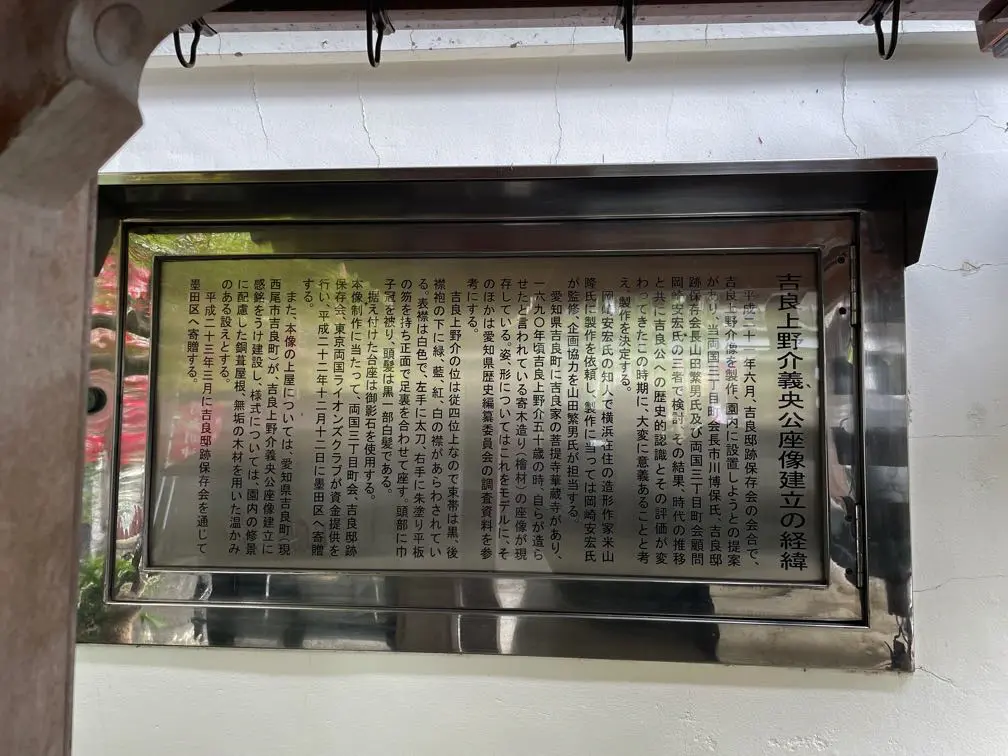 吉良上野介義央公座像建立の経緯
平成二十一年六月、吉良邸跡保存会の会合で、
吉良上野介像を製作、園内に設置しようとの提案
があり、当両国三丁目町会長市川博保氏、吉良邸
跡保存会長山田繁男氏及び両国三丁目町会顧問
岡崎安宏氏の三者で検討、その結果、時代の推移
と共に吉良公への歴史的認識とその評価が変
わってきたこの時期に、大変に意義あることと考
え、製作を決定する。
岡崎安宏氏の知人で横浜在住の造形作家米山
隆氏に製作を依頼し、製作に当っては岡崎安宏氏
が監修、企画協力を山田繁男氏が担当する。
愛知県吉良町に吉良家の菩提寺華蔵寺があり、
一六九〇年頃吉良上野介五十歳の時、自らが造ら
せたと言われている寄木造り(檜材)の座像が現
存している。姿、形についてはこれをモデルに、そ
のほかは愛知県歴史編纂委員会の調査資料を参
考にする。
吉良上野介の位は従四位上なので束帯は黒、後
襟袍の下に緑、藍、紅、白の衿があらわされてい
る。表襟は白色で、左手に太刀、右手に朱塗り平板
の笏を持ち正面で足裏を合わせて座す。頭部に巾
子冠を被り、頭髪は黒一部白髪である。
据え付けた台座は御影石を使用する。
本像制作に当たって、両国三丁目町会、吉良邸跡
保存会、東京両国ライオンズクラブが資金提供を
行い、平成二十二年十二月十二日に墨田区へ寄贈
する。
また、本像の上屋については、愛知県吉良町(現
西尾市吉良町)が、吉良上野介義央公座像建立に
感銘をうけ建設し、様式については、園内の修景
に配慮した銅葺屋根、無垢の木材を用いた温かみ
のある設えとする。
平成二十三年三月に吉良邸跡保存会を通じて
墨田区へ寄贈する。